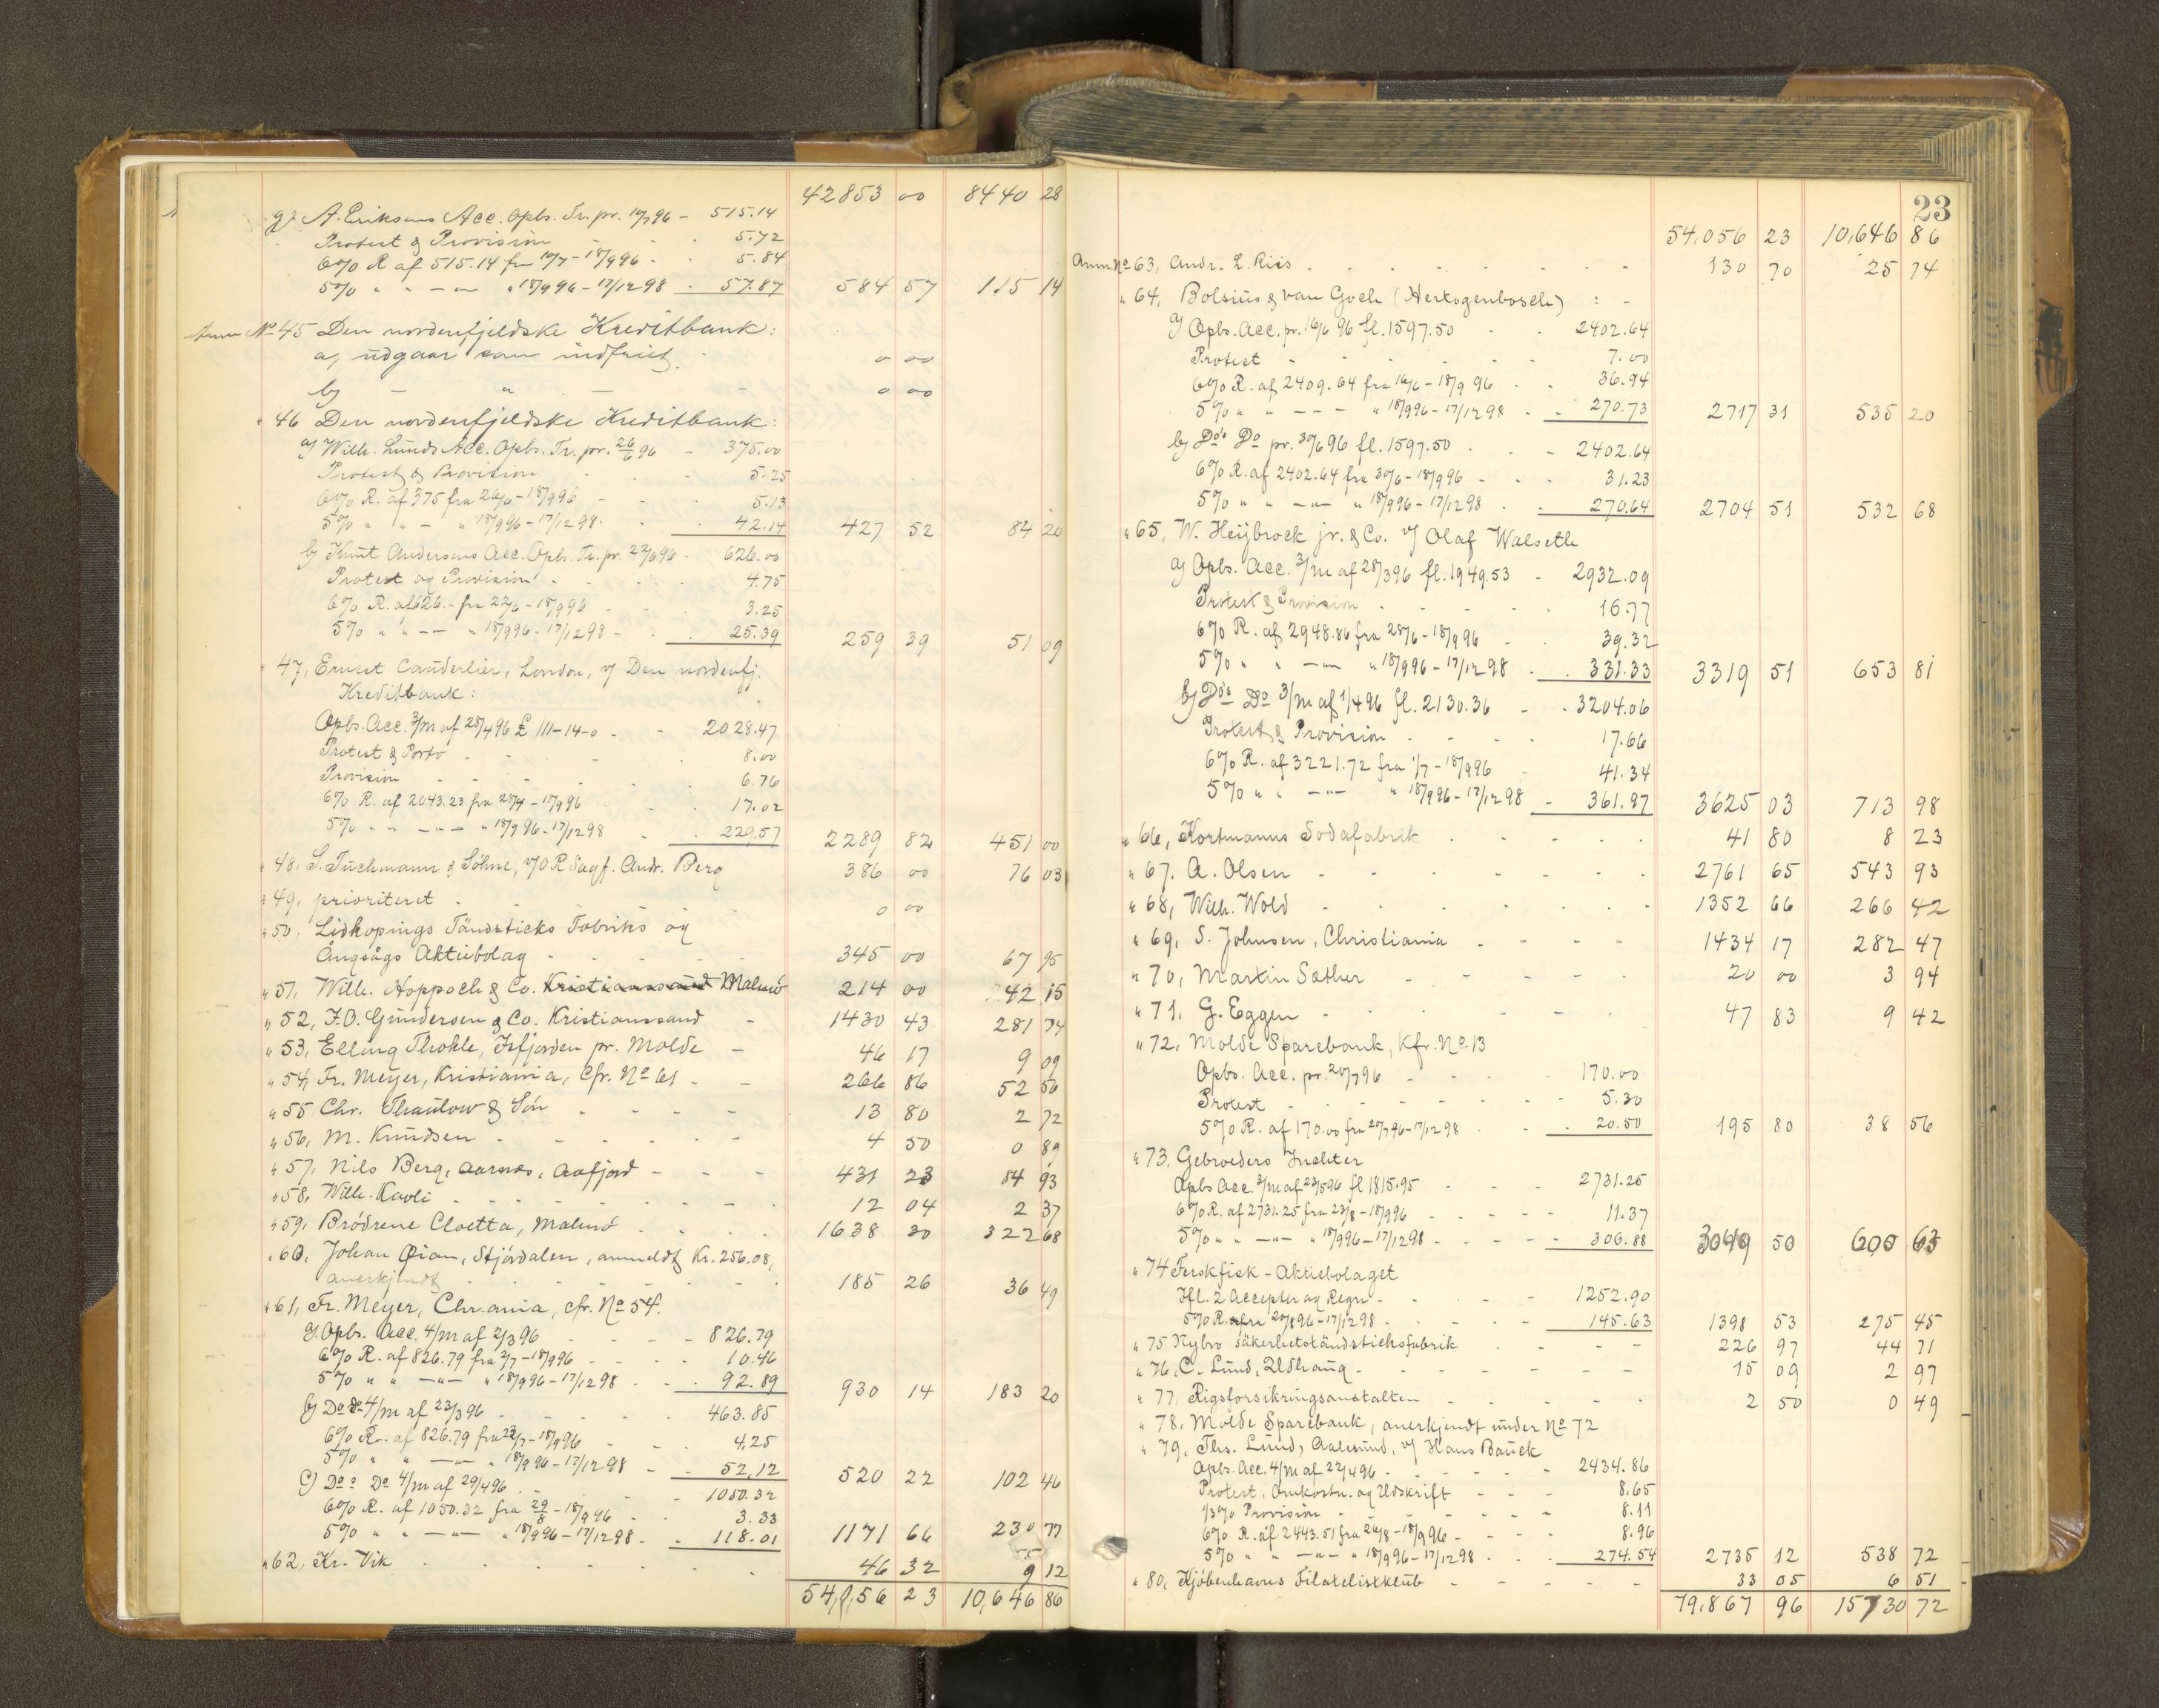 42853 00 8440 28
g) A. Eriksens Acc. Opbs. Tr. pr. 10/7 96 - 515.14
Protest & Provision - - 5.72
6% R af 515.14 fra 10/7 - 18/9 96 - - 5.84
5% " " - " - " 18/9 96 - 17/12 98 - 57.87 584 57 115 14
Anm No 45 Den nordenfjeldske Kreditbank:
a, udgaar som indfriet. 0 00
b) - " - - 0 00
" 46 Den nordenfjeldske Kreditbank:
a) Wilh. Lunds Acc. Opbs. Tr. pr. 26/6 96 - 375.00
Protest & Provision - - 5.25
6% R. af 375 fra 26/6 - 18/9 96 - - 5.13
5% " " - " 18/9 96 - 17/12 98 - - 42.14 427 52 84 20
b) Knut Andersens Acc. Opbs. Tr. pr. 22/6 96 - 626.00
Protest og Provision - - - 4.75
6% R. af 626.- fra 22/6 - 18/9 96 - - 3.25
5% " " - - " 18/9 96 - 17/12 98 - - 25.39 259 39 51 09
" 47, Ernest Cauderlier, London, v/ Den nordenfj.
Kreditbank:
Opbs. Acc. 3/m af 28/4 96 £ 111-14-0 - - 2028.47
Protest & Porto - - - 8.00
Provision - - - - 6.76
6% R. af 2043.23 fra 28/7 - 18/9 96 - - 17.02
5% " " - " - " 18/9 96 - 17/12 98 - - 229.57 2289 82 451 00
" 48, S. Tuchmann & Söhne, v/ O R Sagf. Andr. Berg 386 00 76 03
" 49, prioriteret - - - 0 00
" 50, Lidkopings Tändsticks Fabriks og
Ångsågs Aktiebolag - - - - 345 00 67 95
" 51, Wilh. Hoppoch & Co. Kristianssand Malmö 214 00 42 15
" 52, F.O. Gundersen & Co. Kristianssand - 1430 43 281 74
" 53, Elling Thokle, Isfjorden pr. Molde - 46 17 9 09
" 54, Fr. Meyer, Kristiania, Cfr. No 61 - - 266 86 52 56
" 55 Chr. Thaulow & Sön - - - - 13 80 2 72
" 56, M. Knudsen - - - - - 4 50 0 89
" 57, Nils Berg, Aarnes, Aafjord - - - 431 23 84 93
" 58, Wilh. Kavli - - - - - - 12 04 2 37
" 59, Brödrene Cloetta, Malmö - - - 1638 30 322 68
" 60, Johan Öian, Stjördalen, anmeldt Kr. 256.08,
anerkjendt - - - - - - 185 26 36 49
" 61, Fr. Meyer, Chr.ania, cfr. No 54.
a) Opbs. Acc. 4/m af 2/3 96 - - - 826.79
6% R. af 826.79 fra 2/7 - 18/9 96 - - - 10.46
5% " " - " - " 18/9 96 - 17/12 98 - - 92.89 930 14 183 20
b) Do do 4/m af 23/3 96 - - - - 463.85
6% R. af 826.79 fra 23/7 - 18/9 96 - - - 4.25
5% " " - " - " 18/9 96 - 17/12 98 - - 52.12 520 22 102 46
c) Do Do 4/m af 29/4 96 - - - - 1050.32
6% R. af 1050.32 fra 29/8 - 18/9 96 - - 3.33
5% " " - " - " 18/9 96 - 17/12 98 - - 118.01 1171 66 230 77
" 62, Kr. Vik - - - - - 46 32 9 12
54,056 23 10,646 86
23
54,056 23 10,646 86
Anm. No 63, Andr. L. Riis - - - - - - - 130 70 25 74
" 64, Bolsius & van Goch (Hertogenbosch) : -
a) Opbs. Acc. pr. 16/6 96 fl. 1597.50 - - 2402.64
Protest - - - - - - 7.00
6% R. af 2409.64 fra 16/6 - 18/9 96 - - 36.94
5% " " - - - " 18/9 96 - 17/12 98 - - 270.73 2717 31 535 20
b) Do's Do pr. 30/6 96 fl. 1597.50 - - - 2402.64
6% R. af 2402.64 fra 30/6 - 18/9 96 - - - 31.23
5% " " - " - " 18/9 96 - 17/12 98 - - 270.64 2704 51 532 68
" 65, W. Heijbroek jr. & Co. v/ Olaf Walseth
a) Opbs. Acc. 3/m af 28/3 96 fl. 1949.53 - 2932.09
Protest & Provision - - - - 16.77
6% R. af 2948.86 fra 28/6 - 18/9 96 - - 39.32
5% " " - " - " 18/9 96 - 17/12 98 - - 331.33 3319 51 653 81
b) Do's Do 3/m af 1/4 96 fl. 2130.36 - - 3204.06
Protest & Provision - - - - 17.66
6% R. af 3221.72 fra 1/7 - 18/9 96 - 41.34
5% " " - " - " 18/9 96 - 17/12 98 - 361.97 3625 03 713 98
" 66, Kortmanns Sodafabrik - - - - - 41 80 8 23
" 67, A. Olsen - - - - - - - 2761 65 543 93
" 68, Wilh. Wold - - - - - - - 1352 66 266 42
" 69, S. Johnsen, Christiania - - - - 1434 17 282 47
" 70, Martin Sæther - - - - - 20 00 3 94
" 71, G. Eggen - - - - - - 47 83 9 42
" 72, Molde Sparebank, Kfr. No 13
Opbs. Acc. pr. 20/7 96 - - - - 170.00
Protest - - - - - - - 5.30
5% R. af 170.00 fra 20/7 96 - 17/12 98 - - - 20.50 195 80 38 56
" 73, Gebroeders Juchter
Opbs Acc. 3/m af 23/5 96 fl 1815.95 - - - 2731.25
6% R. af 2731.25 fra 23/8 - 18/9 96 - - - - 11.37
5% " " - " - " 18/9 96 - 17/12 98 - - - - 306.88 3049 50 600 63
" 74 Ferskfisk-Aktiebolaget
Ifl. 2 Accepter og Regn - - - - 1252.90
5% R. fra 20/8 96 - 17/12 98 - - - - 145.63 1398 53 275 45
" 75 Nybro Säkerhetständsticksfabrik - - - - 226 97 44 71
" 76, C. Lund, Udhaug - - - - - - - 15 09 2 97
" 77, Rigsforsikringsanstalten - - - - - 2 50 0 49
" 78, Molde Sparebank, anerkjendt under No 72
" 79, Ths. Lund, Aalesund, v/ Hans Bauck
Opbs. Acc. 4/m af 22/4 96 - - - - - 2434.86
Protest, Omkostn. og Udskrift - - - 8.65
1/3% Provision - - - - - 8.11
6% R. af 2443.51 fra 26/8 - 18/9 96 - - - - 8.96
5% " " - " - " 18/9 96 - 17/12 98 - - - 274.54 2735 12 538 72
" 80, Kjöbenhavns Filatelistklub - - - - - 33 05 6 51
79,867 96 15730 72